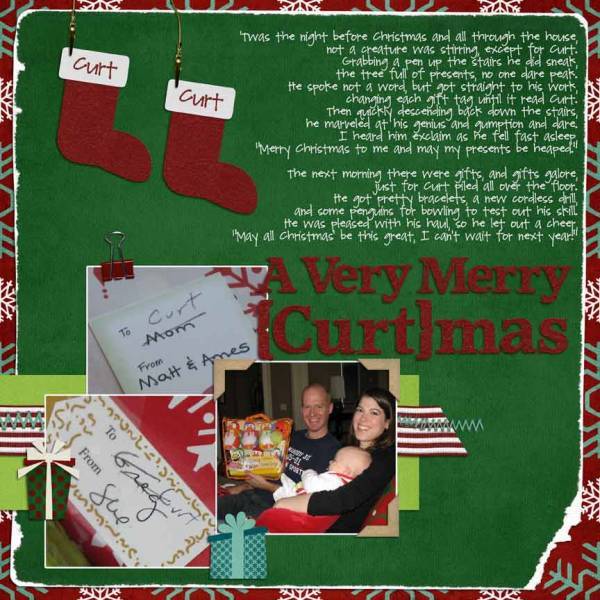 Curt
Curt
'Twas the night before Christmas and all through the house,
not a creature was stirring, except for Curt.
Grabbing a pen up the stairs he did sneak,
the tree full of presents, no one dare peak.
He spoke not a word, but got straight to his work,
changing each gift tag until it read Curt.
Then quickly descending back down the stairs,
he marveled at his genius and gumption and dare.
I heard him exclaim as he fell fast asleep
"Merry Christmas to me and may my presents be heaped."
The next morning there were gifts, and gifts galore,
just for Curt piled all over the floor.
He got pretty bracelets, a new cordless drill,
and some penguins for bowling to test out his skill.
He was pleased with his haul, so he let out a cheer
"May all Christmas' be this great, I can't wait for next year!"
A Very Merry
{Curt}mas
Curt
To Mom
From
Matt & Ames
To
Curt
From
Sue